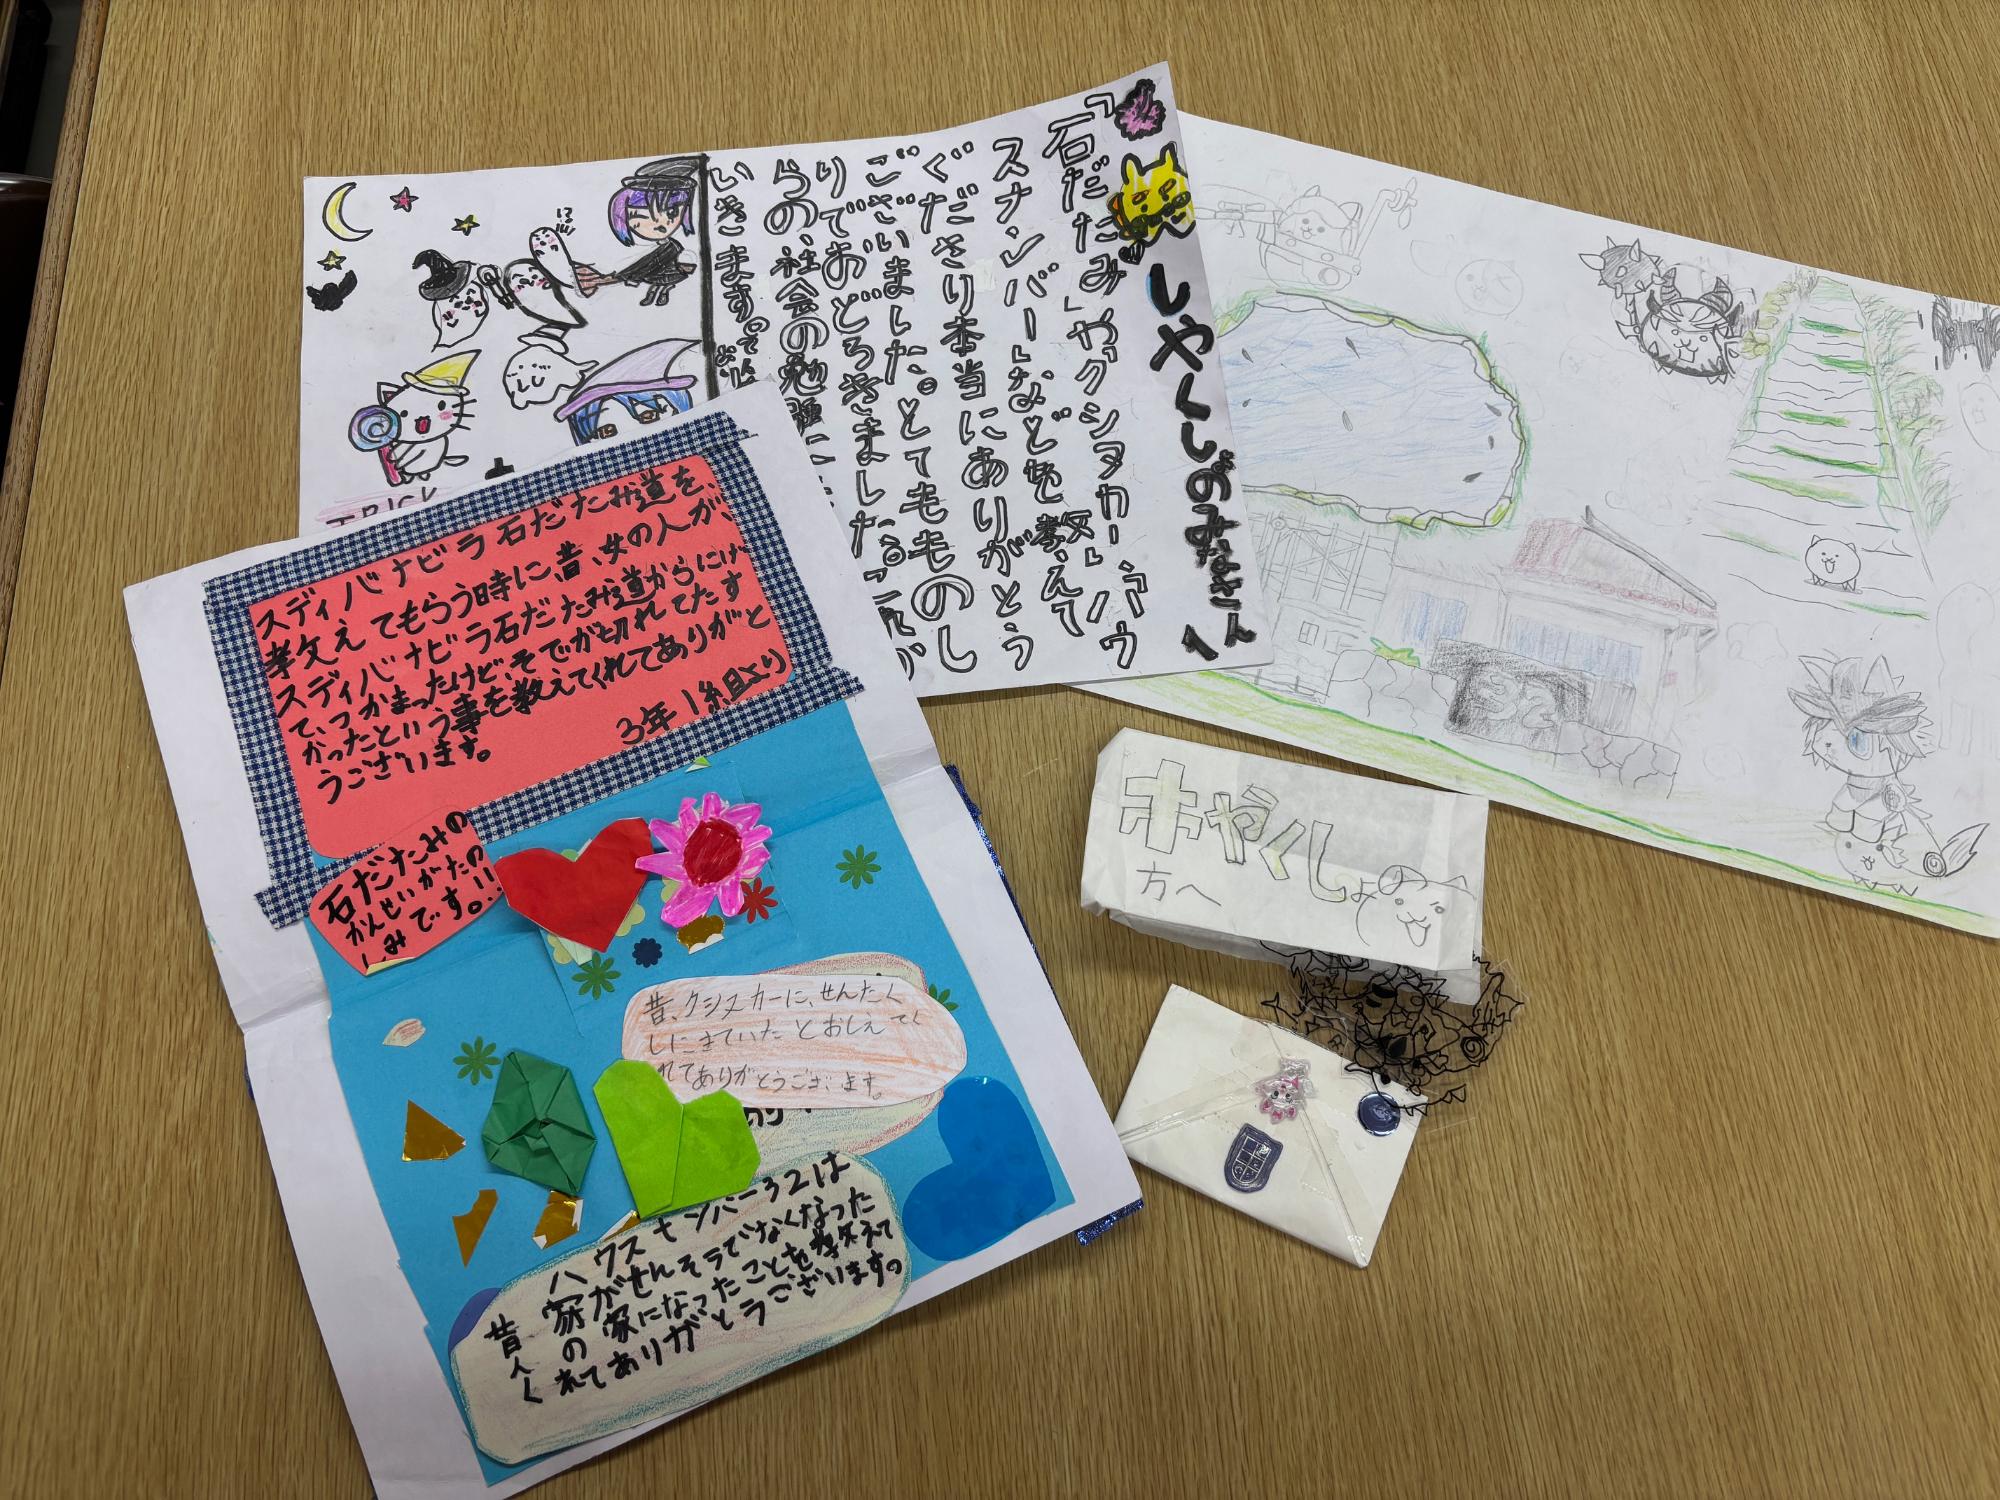 しやくしょのみなさんへ
「石だたみ」や「クシヌカー」「ハウ
スナンバー」などを教えて
くださり本当にありがとう
ございました。とてももの
りでおどろきました。
らの社会の勉強に
いきます。
TRICK
スディバナビラ石だたみ道を、
教えてもらう時に、昔、女の人が、
スディバナビラ石だたみ道からにげ
て、つかまったけど、そでが切れてたす
かったという事を教えてくれてありがと
うございます。
3年1組より
石だたみの
かんせいがたの
しみです。!!
昔、クシヌカーに、せんたく
しにきていたとおしえてく
れてありがとうございます。
ハウスナンバー32は
家がせんそうでなくなった
の家になったことを教えて
れてありがとうございます。
昔
人
く
32
しやくしょ
方へ